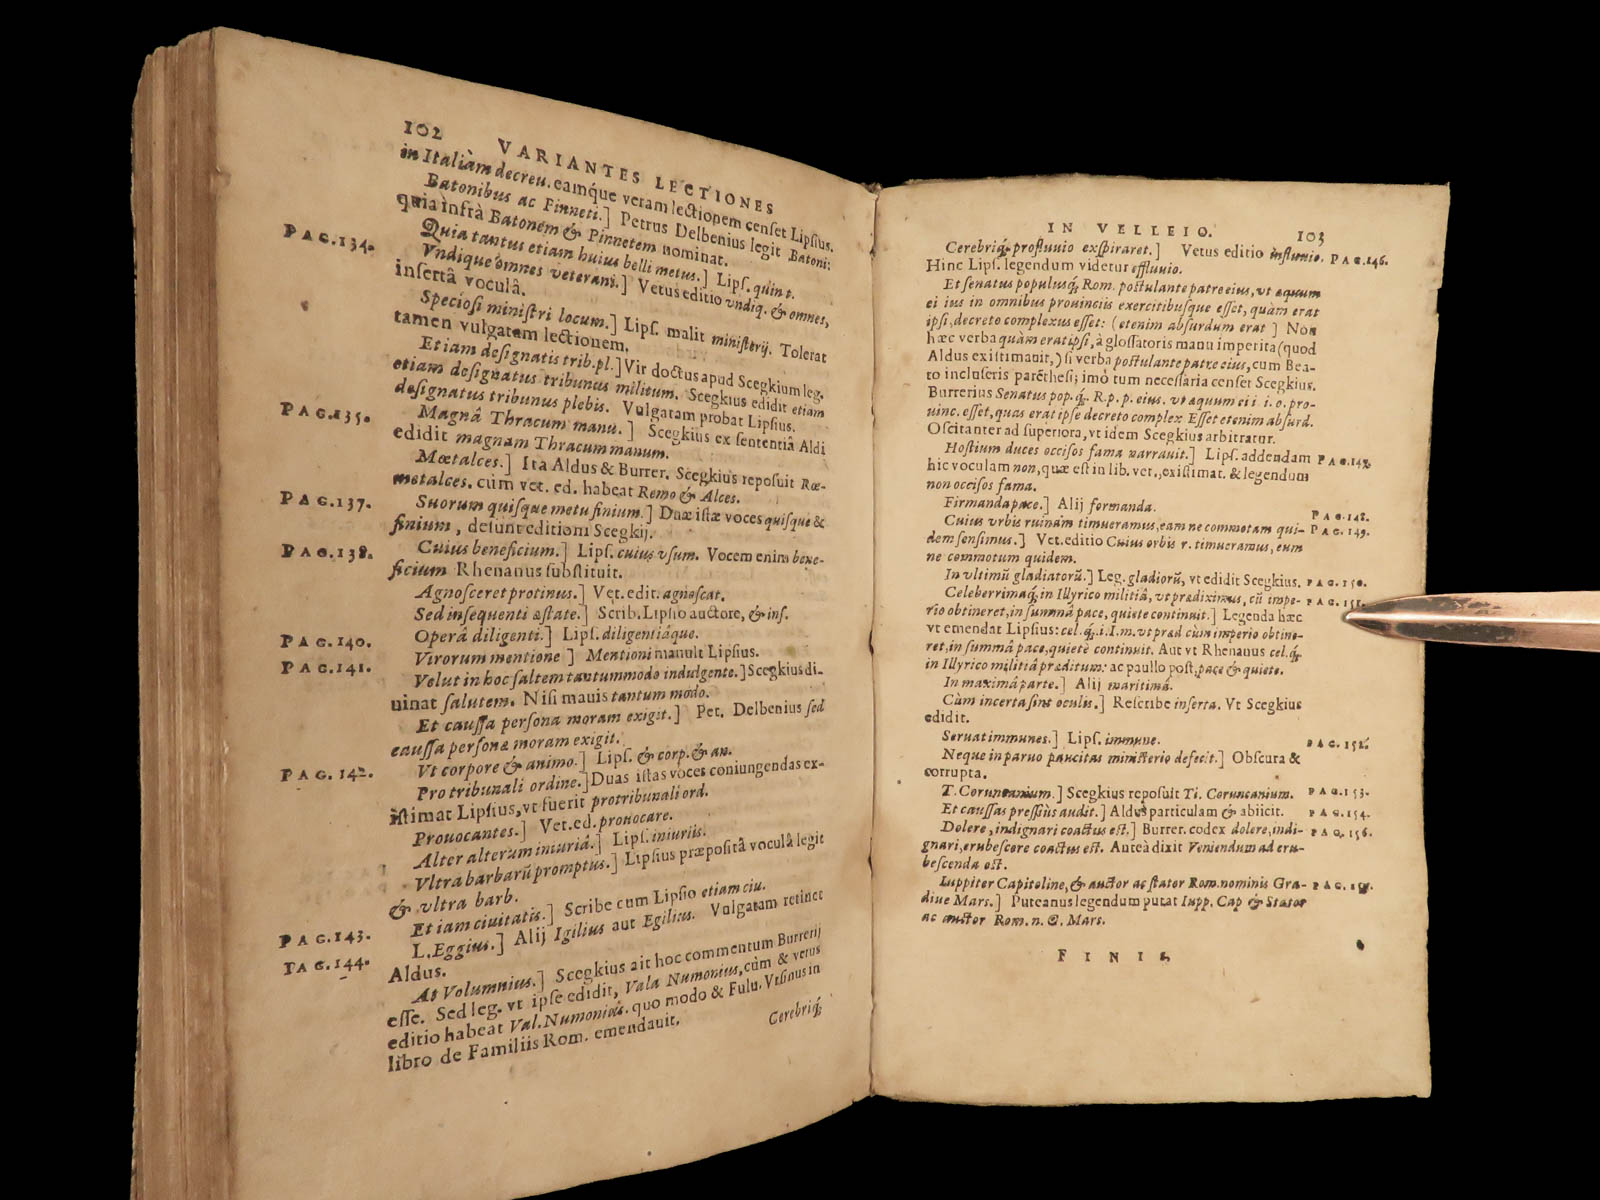 102 VARIANTES LECTIONES
in Italiàm decreu. eamq́ue veram lectionem censet Lipsius.
Batonibus ac Pinneti.] Petrus Delbenius legit Batoni:
quia infrà Batonem & Pinnetem nominat.
PAG.134. Quia tantus etiam huius belli metus.] Lips. quin t.
Vndique omnes veterani.] Vetus editio vndiq. & omnes,
insertâ voculâ.
Speciosi ministri locum.] Lips. malit ministerij. Tolerat
tamen vulgatam lectionem.
Etiam designatis trib. pl.] Vir doctus apud Scegkium leg.
etiam designatus tribunus militum. Scegkius edidit etiam
designatus tribunus plebis. Vulgatam probat Lipsius.
PAG.135. Magnâ Thracum manu.] Scegkius ex sententiâ Aldi
edidit magnam Thracum manum.
Mœtalces.] Ita Aldus & Burrer. Scegkius reposuit Rœ-
metalces. cùm vet. ed. habeat Remo & Alces.
PAG.137. Suorum quisque metu finium.] Duæ istæ voces quisque &
finium, desunt editioni Scegkij.
PAG.138. Cuius beneficium.] Lips. cuius vsum. Vocem enim bene-
ficium Rhenanus substituit.
Agnosceret protinus.] Vet. edit. agnoscat.
Sed insequenti æstate.] Scrib. Lipsio auctore, & ins.
PAG.140. Operâ diligenti.] Lips. diligentiâque.
PAG.141. Virorum mentione] Mentioni mauult Lipsius.
Velut in hoc saltem tantummodo indulgente.] Scegkius di-
uinat salutem. Nisi mauis tantum modo.
Et caussa persona moram exigit.] Pet. Delbenius sed
caussa personæ moram exigit.
Vt corpore & animo.] Lips. & corp. & an.
PAG. 142. Pro tribunali ordine.] Duas istas voces coniungendas ex-
istimat Lipsius, vt fuerit protribunali ord.
Prouocantes.] Vet. ed. prouocare.
Alter alterum iniuriâ.] Lips. iniuriis.
Vltra barbarũ promptus.] Lipsius præpositâ voculâ legit
& vltra barb.
PAG.143. Etiam ciuitatis.] Scribe cum Lipsio etiam ciu.
PAG.144. L. Eggius.] Alij Igilius aut Egilius. Vulgatam retinet
Aldus.
At Volumnius.] Scegkius ait hoc commentum Burrerij
esse. Sed leg. vt ipse edidit, Vala Numonius, cùm & vetus
editio habeat Val. Numonius. quo modo & Fulu. Vrsinus in
libro de Familiis Rom. emendauit.
Cerebriq́;
IN VELLEIO. 103
Cerebriq́; profluuio exspiraret.] Vetus editio influuio. PAG.146.
Hinc Lips. legendum videtur effluuio.
Et senatus populusq́; Rom. postulante patre eius, vt æquum
ei ius in omnibus prouinciis exercitibusque esset, quàm erat
ipsi, decreto complexus esset: (etenim absurdum erat] Non
hæc verba quàm erat ipsi, à glossatoris manu imperita (quod
Aldus existimauit,) si verba postulante patre eius, cum Bea-
to incluseris parẽthesi; imò tum necessaria censet Scegkius.
Burrerius Senatus pop. q́. R. p. p. eius. vt æquum ei i. i. o. pro-
uinc. esset, quas erat ipse decreto complex Esset etenim absurd.
Oscitanter ad superiora, vt idem Scegkius arbitratur.
Hostium duces occisos fama narrauit.] Lips. addendam PAG.147.
hic voculam non, quæ est in lib. vet., existimat. & legendum
non occisos fama.
Firmanda pace.] Alij formanda. PAG.148.
Cuius vrbis ruinam timueramus, eam ne commotam qui- PAG.149.
dem sensimus.] Vet. editio Cuius orbis r. timueramus, eum
ne commotum quidem.
In vltimũ gladiatorũ.] Leg. gladiorũ, vt edidit Scegkius. PAG.150.
Celeberrimaq́; in Illyrico militiâ, vt prædiximus, cũ impe- PAG.151.
rio obtineret, in summâ pace, quiete continuit.] Legenda hæc
vt emendat Lipsius: cel. q́. i. I. m. vt præd cùm imperio obtine-
ret, in summâ pace, quietè continuit. Aut vt Rhenanus cel. q́;
in Illyrico militiâ præditum: ac paullo post, pace & quiete.
In maximâ parte.] Alij maritimâ.
Cùm incerta sint oculis.] Rescribe inserta. Vt Scegkius
edidit.
Seruat immunes.] Lips. immune. PAG.152.
Neque in paruo paucitas ministerio defecit.] Obscura &
corrupta.
T. Coruncanium.] Scegkius reposuit Ti. Coruncanium. PAG.153.
Et caussas pressiùs audit.] Aldus particulam & abiicit. PAG.154.
Dolere, indignari coactus est.] Burrer. codex dolere, indi- PAG.156.
gnari, erubescere coactus est. Anteà dixit Veniendum ad eru-
bescenda est.
Iuppiter Capitoline, & auctor ac stator Rom. nominis Gra- PAG.157.
diue Mars.] Puteanus legendum putat Iupp. Cap & Stator
ac auctor Rom. n. G. Mars.
FINIS.